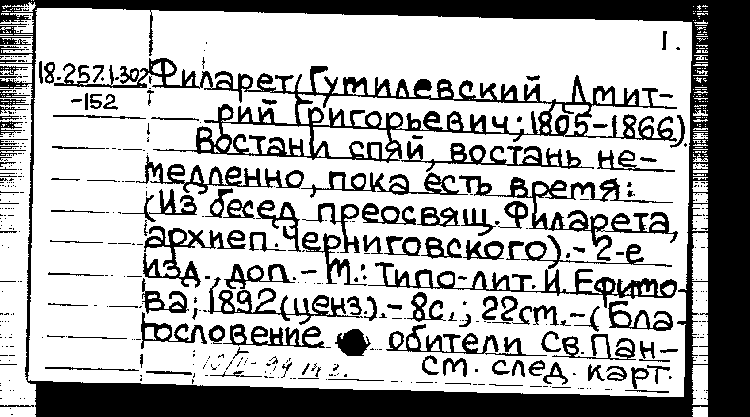 I.
18.257.1.302 Филарет(Гумилевский, Дмит-
-152 рий Григорьевич; 1805-1866)
Востани спяй, востань не-
медленно, пока есть время:
(Из бесед преосвящ. Филарета,
архиеп. Черниговского).- 2-е
изд., доп. - М.: Типо-лит. И. Ефимо-
ва; 1892(ценз.).- 8с.; 22см. - (Бла-
гословение обители Св. Пан-
см. след. карт.